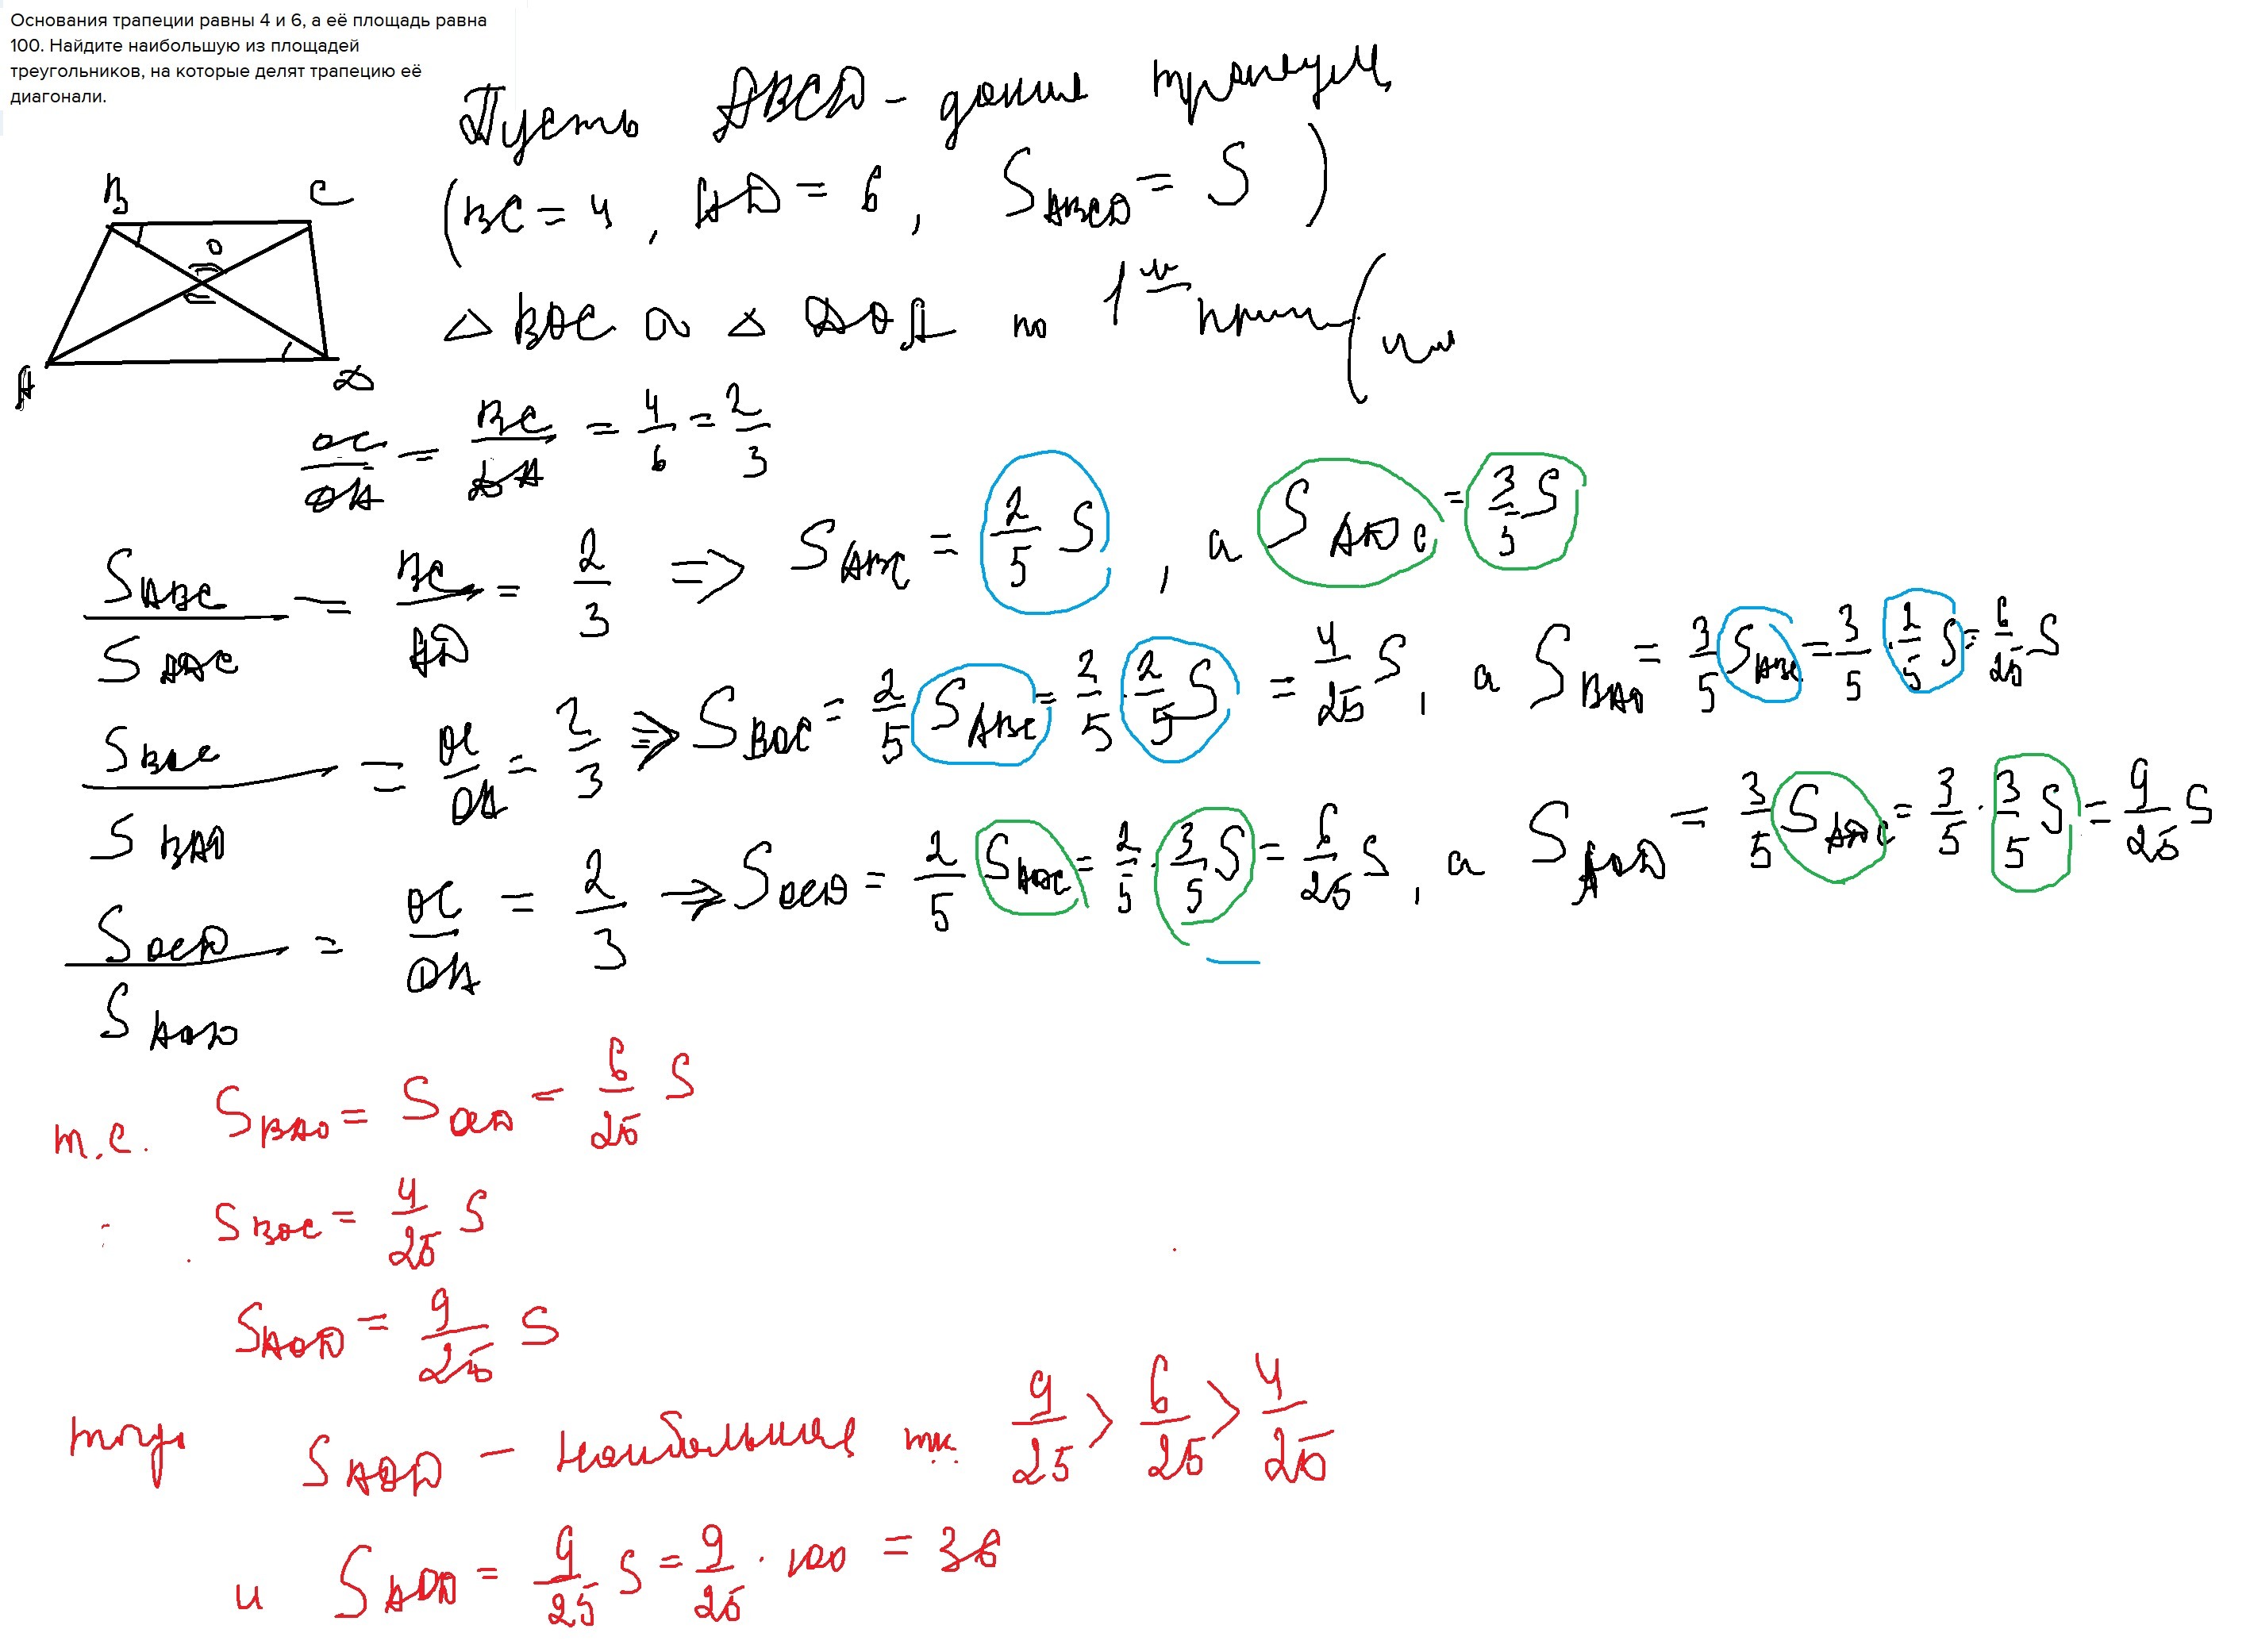 Основания трапеции равны 4 и 6, а её площадь равна
100. Найдите наибольшую из площадей
треугольников, на которые делят трапецию её
диагонали.
Пусть ABCD - данная трапеция
(BC = 4, AD = 6, S_ABCD = S)
B C
O
A D
△ BOC ∾ △ DOA по 1му
OC/OA = BC/DA = 4/6 = 2/3
S_ABC/S_ADC = BC/AD = 2/3 => S_ABC = 2/5 S, а S_ADC = 3/5 S
S_BOC/S_BAO = OC/OA = 2/3 => S_BOC = 2/5 S_ABC = 2/5 · 2/5 S = 4/25 S, а S_BAO = 3/5 S_ABC = 3/5 · 2/5 S = 6/25 S
S_OCD/S_AOD = OC/OA = 2/3 => S_OCD = 2/5 S_ADC = 2/5 · 3/5 S = 6/25 S, а S_AOD = 3/5 S_ADC = 3/5 · 3/5 S = 9/25 S
т.е. S_BAO = S_OCD = 6/25 S
S_BOC = 4/25 S
S_AOD = 9/25 S
тогда S_AOD - наибольшая т.к. 9/25 > 6/25 > 4/25
и S_AOD = 9/25 S = 9/25 · 100 = 36